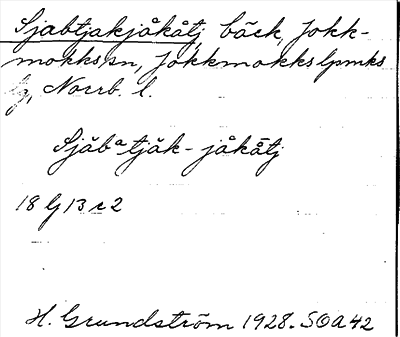 Sjabtjakjåkåtj, bäck, Jokk-
mokks sn, Jokkmokks lpmks
tg, Norrb. l.
Sjăbᵃtjăk-jåkåtj
18 G 13 c 2
H. Grundström 1928. SOA 42